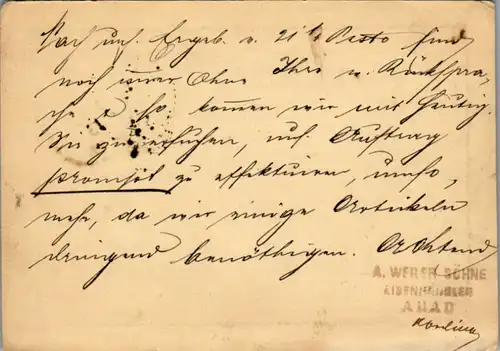 Nach uns. Ergeb. v. 21/4 Pesto sind
noch immer ohne Ihre w. Rückspra-
che & so kommen wir mit Heutig.
Sie zu ersuchen, uns. Auftrag
prompt zu effektuiren, umso,
mehr, da wir einige Artikeln
dringend benöthigen. Achtend
A. WEISER SÖHNE
EISENHÄNDLER
ARAD